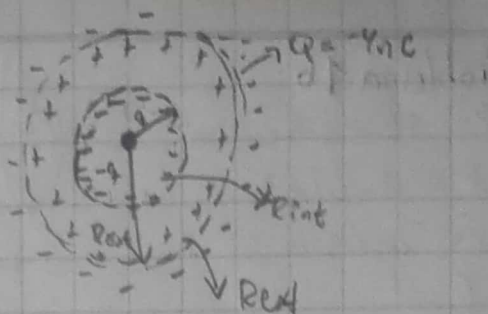 Q = -4nC
q
-q
Rint
Rext
Rext